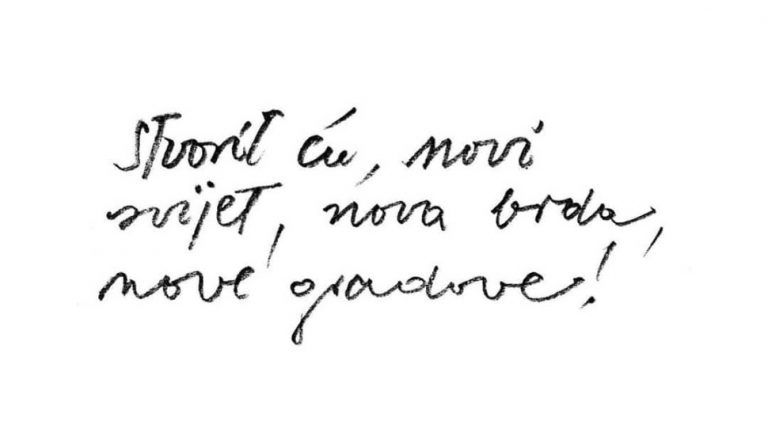 Stvorit ću, novi
svijet, nova brda,
nove gradove!